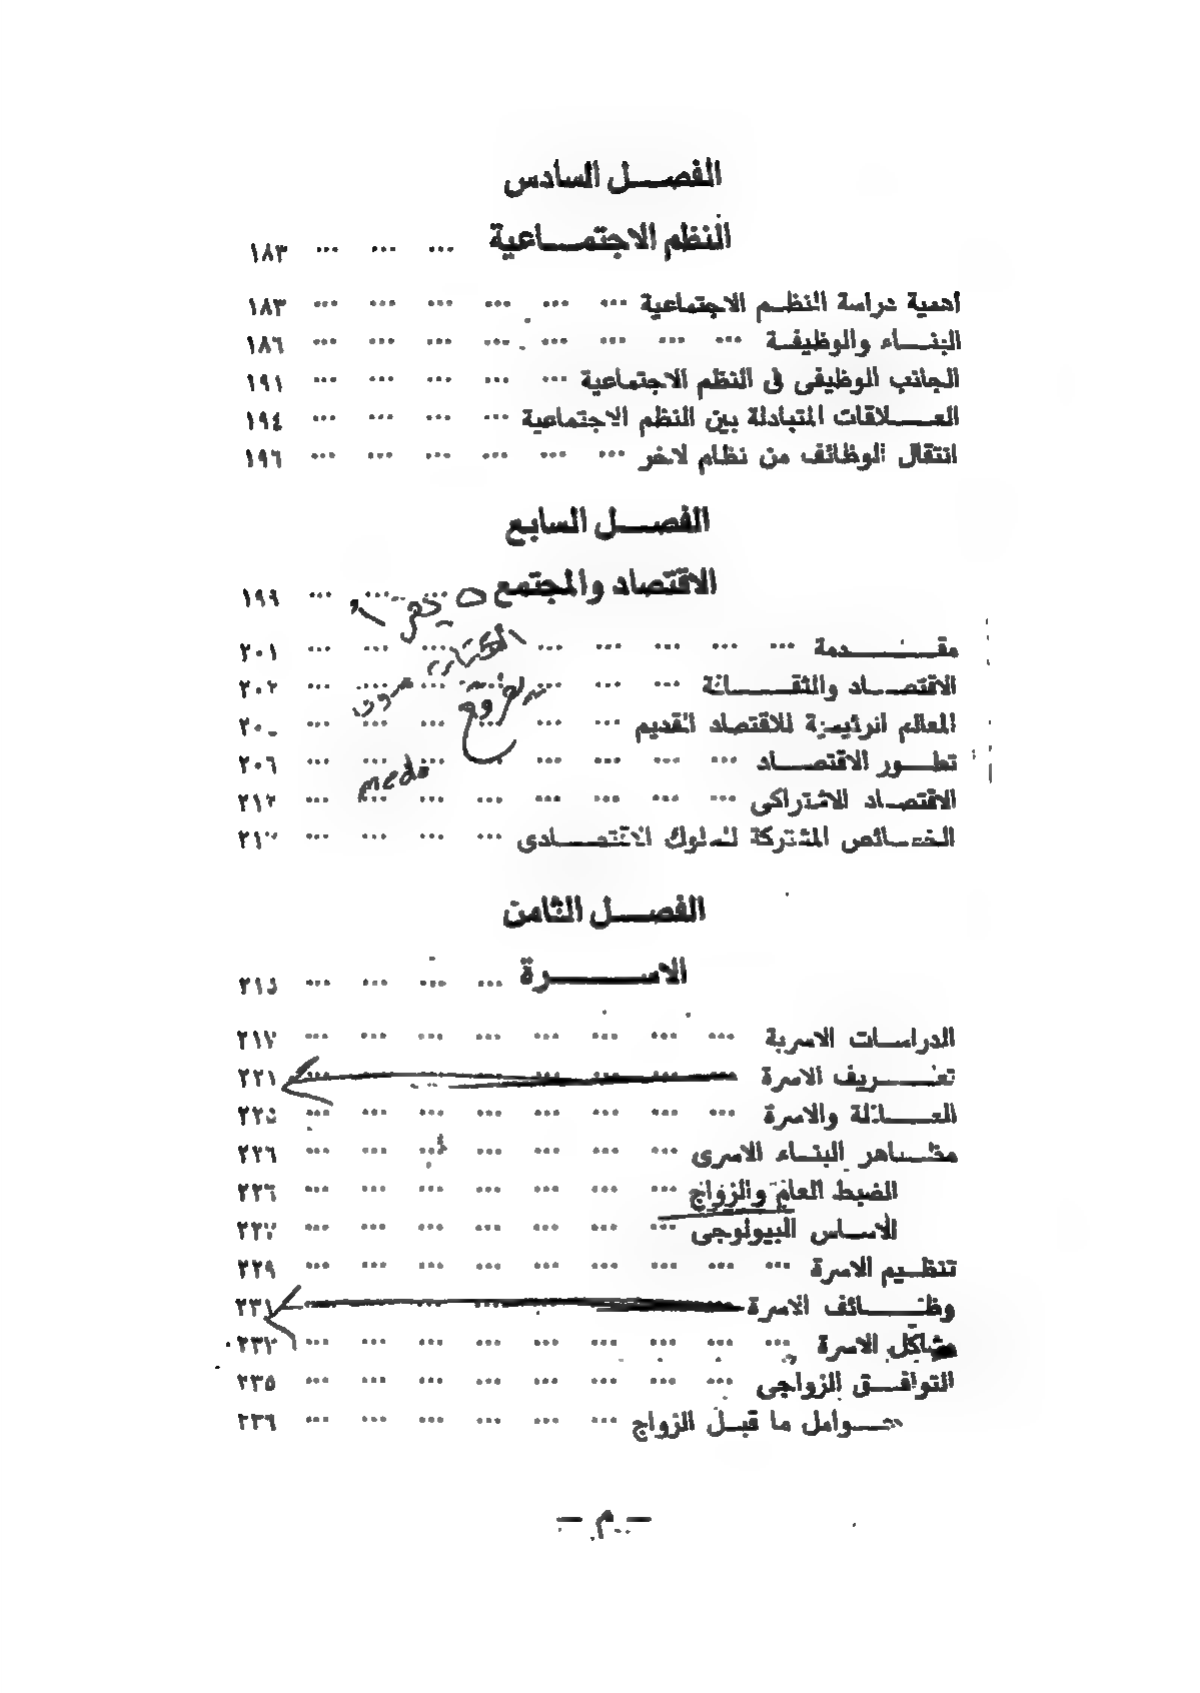 الفصل السادس
النظم الاجتماعية ... ... ... ١٨٣
أهمية دراسة النظم الاجتماعية ... ... ... ... ... ... ١٨٣
البناء والوظيفة ... ... ... ... ... ... ... ... ١٨٦
الجانب الوظيفى فى النظم الاجتماعية ... ... ... ... ... ١٩١
العلاقات المتبادلة بين النظم الاجتماعية ... ... ... ... ١٩٤
انتقال الوظائف من نظام لاخر ... ... ... ... ... ... ١٩٦
الفصل السابع
الاقتصاد والمجتمع ... ... ... ١٩٩
مقدمة ... ... ... ... ... ... ... ... ... ٢٠١
الاقتصاد والثقافة ... ... ... ... ... ... ... ٢٠٢
المعالم الرئيسية للاقتصاد القديم ... ... ... ... ... ...
تطور الاقتصاد ... ... ... ... ... ... ... ... ٢٠٦
medo
الاقتصاد الاشتراكى ... ... ... ... ... ... ... ... ٢١٢
الخصائص المشتركة للسلوك الاقتصادى ... ... ... ...
الفصل الثامن
الاسرة ... ... ... ... ٢١٥
الدراسات الاسرية ... ... ... ... ... ... ... ... ٢١٧
تعريف الاسرة ... ... ... ... ... ... ... ... ٢٢١
العائلة والاسرة ... ... ... ... ... ... ... ... ٢٢٥
مظاهر البناء الاسرى ... ... ... ... ... ... ... ٢٢٦
الضبط العام والزواج ... ... ... ... ... ... ... ٢٢٦
الأساس البيولوجى ... ... ... ... ... ... ... ٢٢٧
تنظيم الاسرة ... ... ... ... ... ... ... ... ... ٢٢٩
وظائف الاسرة ... ... ... ... ... ... ... ... ٢٣١
مشاكل الاسرة ... ... ... ... ... ... ... ... ... ٢٣٢
التوافق الزواجى ... ... ... ... ... ... ... ... ٢٣٥
عوامل ما قبل الزواج ... ... ... ... ... ... ٢٣٦
— م —